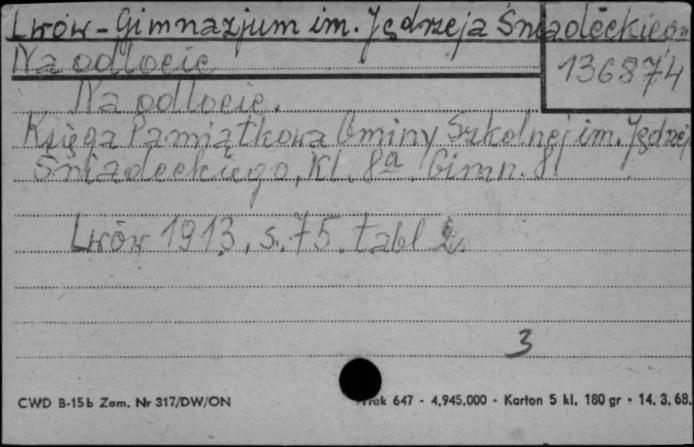 Lwów - Gimnazjum im. Jędrzeja Śniadeckiego
Na odlocie
136874
Na odlocie.
Księga Pamiątkowa Gminy Szkolnej im. Jędrzej
Śniadeckiego, Kl. 8a. Gimn. 8.
Lwów 1913, s. 75. tabl 2.
3
CWD B-15b Zam. Nr 317/DW/ON
647 - 4.945.000 - Karton 5 kl. 180 gr - 14. 3. 68.